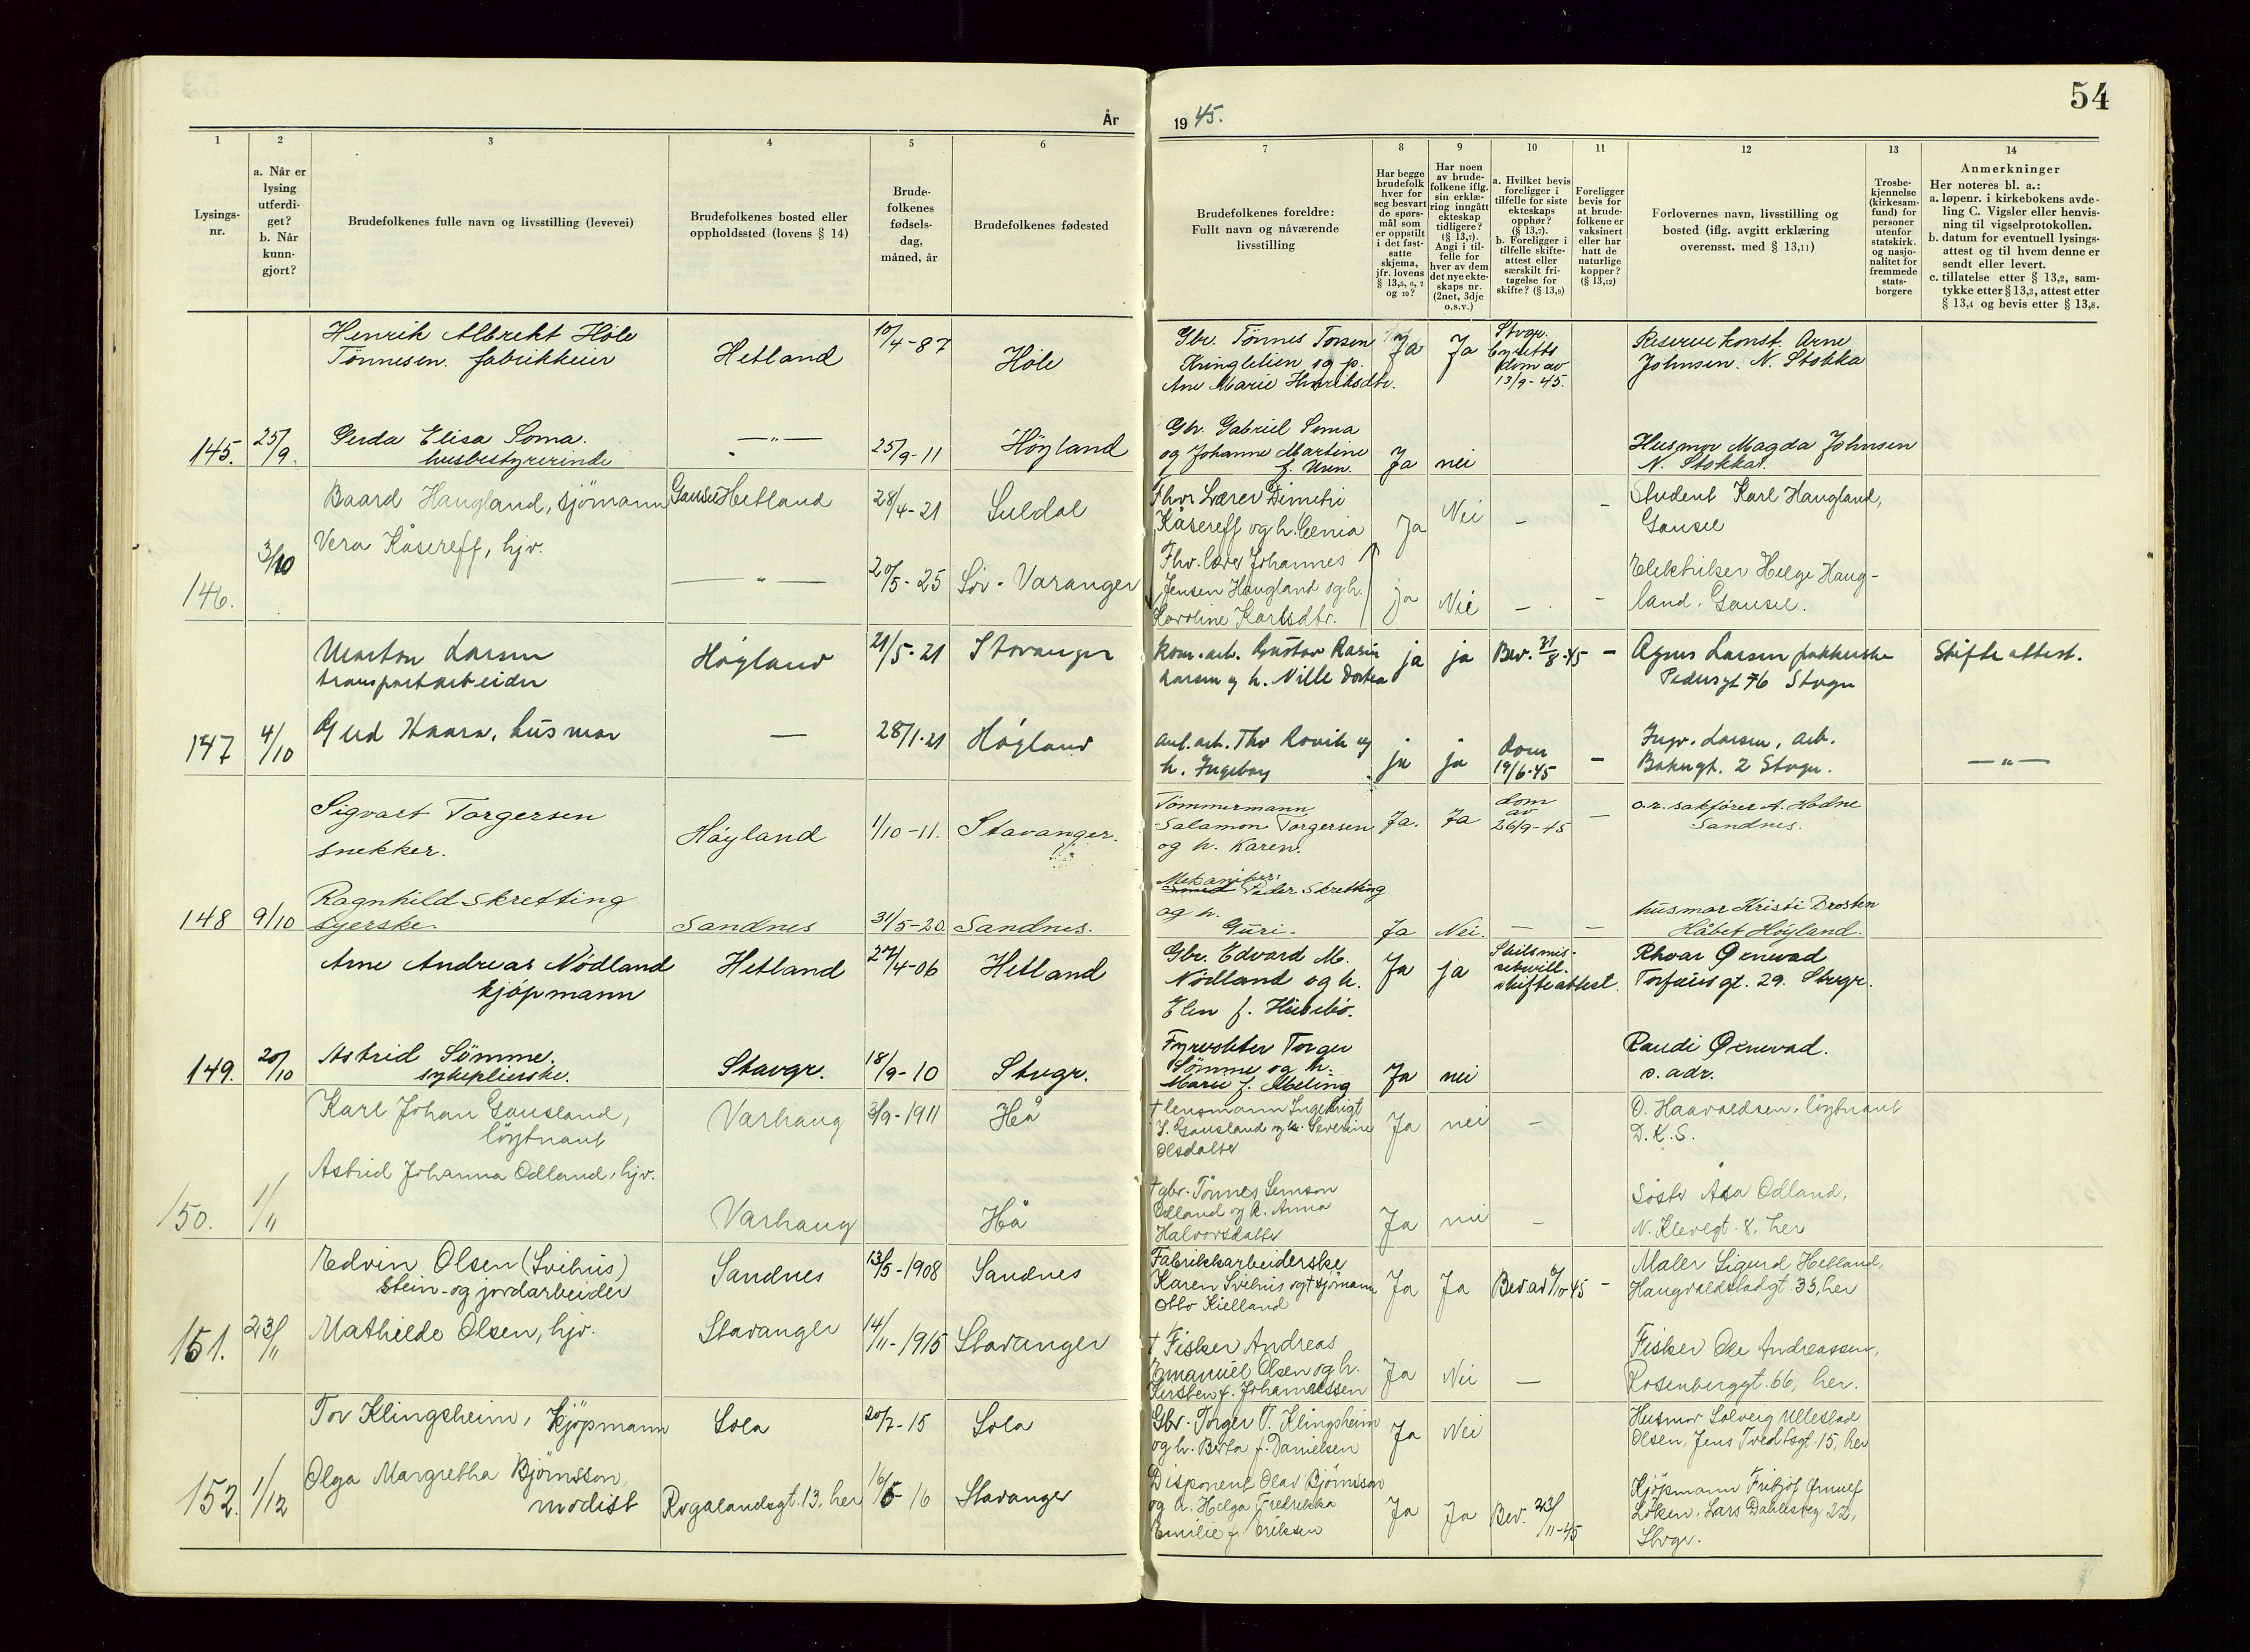 54
År
1945.
1
2
3
4
5
6
7
8
9
10
11
12
13
14
Lysings-
nr.
a. Når er
lysing
utferdi-
get?
b. Når
kunn-
gjort?
Brudefolkenes fulle navn og livsstilling (levevei)
Brudefolkenes bosted eller
oppholdssted (lovens § 14)
Brude-
folkenes
fødsels-
dag,
måned, år
Brudefolkenes fødested
Brudefolkenes foreldre:
Fullt navn og nåværende
livsstilling
Har begge
brudefolk
hver for
seg besvart
de spørs-
mål som
er oppstilt
i det fast-
satte
skjema,
jfr. lovens
§ 13,5, 6, 7
og 10?
Har noen
av brude-
folkene iflg.
sin erklæ-
ring inngått
ekteskap
tidligere?
(§ 13,7).
Angi i til-
felle for
hver av dem
det nye ekte-
skaps nr.
(2net, 3dje
o.s.v.)
a. Hvilket bevis
foreligger i
tilfelle for siste
ekteskaps
opphør?
(§ 13,7).
b. Foreligger i
tilfelle skifte-
attest eller
særskilt fri-
tagelse for
skifte? (§ 13,9)
Foreligger
bevis for
at brude-
folkene er
vaksinert
eller har
hatt de
naturlige
kopper?
(§ 13,12)
Forlovernes navn, livsstilling og
bosted (iflg. avgitt erklæring
overensst. med § 13,11)
Trosbe-
kjennelse
(kirkesam-
fund) for
personer
utenfor
statskirk.
og nasjo-
nalitet for
fremmede
stats-
borgere
Anmerkninger
Her noteres bl. a.:
a. løpenr. i kirkebokens avde-
ling C. Vigsler eller henvis-
ning til vigselprotokollen.
b. datum for eventuell lysings-
attest og til hvem denne er
sendt eller levert.
c. tillatelse etter § 13,2, sam-
tykke etter § 13,3, attest etter
§ 13,4 og bevis etter § 13,8.
Henrik Albrekt Höle
Tönnesen. fabrikkeier
Hetland
10/4-87
Höle
Gbr. Tönnes Torsen
Kringlelien og p.
Ane Marie Henriksdtr.
Ja
Ja
Stvgr.
byretts
dom av
13/9-45.
Reservekonst. Arne
Johnsen. N. Stokka
145.
25/9.
Gerda Elisa Soma.
husbestyrerinde
—"—
25/9-11
Höyland
Gbr. Gabriel Soma
og Johanne Martine
f. Uren.
Ja
nei
Husmor Magda Johnsen
N. Stokka.
Baard Haugland, sjömann
Gausel Hetland
28/4-21
Suldal
Fhv. Lærer Dimitri
Kåsereff og h. Cenia
Ja
Nei
—
-
Student Karl Haugland,
Gausel
146.
3/10
Vera Kåsereff, hjv.
—"—
20/5-25
Sör-Varanger
Fhv. lærer Johannes
Jensen Haugland og h.
Karoline Karlsdtr.
ja
Nei
—
-
Elektriker Helge Haug-
land. Gausel.
Marton Larsen
transportarbeider
Höyland
21/5-21
Stavanger
kom.arb. Gustav Rasin
Larsen og h. Nille Dortea
ja
ja
Bev. 31/8-45
-
Agnes Larsen pakkerske
Pedersgt 76 Stvgr
Skifteattest.
147
4/10
Gud Haara, husmor
—
28/1-21
Höyland
anl.arb. Thv Rovik og
h. Ingeborg
ja
ja
Dom
19/6-45
-
Ingv. Larsen, arb.
Bakergt. 2 Stvgr.
—"—
Sigvart Torgersen
snekker.
Höyland
1/10-11.
Stavanger.
Tömmermann
Salamon Torgersen
og h. Karen.
Ja.
Ja
dom
av
26/9-45
—
o.r. sakförer A. Hodne
Sandnes.
148
9/10
Ragnhild Skretting
syerske.
Sandnes
31/5-20
Sandnes.
Mekaniker:
Smed Peder Skretting
og h.
Guri.
Ja
Nei.
—
—
husmor Kristi Brosten
Håbet Höyland.
Arne Andreas Nödland
kjöpmann
Hetland
27/4-06
Hetland
Gbr. Edvard M.
Nödland og h.
Elen f. Husebö.
Ja
ja
Skilsmis-
sebevill.
skifteattest.
Rhoar Ørnevad
Torfæusgt. 29. Stvgr.
149.
20/10
Astrid Sömme.
sykepleierske.
Stavgr.
18/9-10
Stvgr.
Fyrvokter Torger
Sömme og h.
Marie f. Meling
Ja
nei
Randi Ørnevad.
s. adr.
Karl Johan Gausland,
löytnant
Varhaug
3/9-1911
Hå
† lensmann Ingebrigt
S. Gausland og h. Severine
Olsdatter
Ja
nei
—
O. Haavaldsen, löytnant
D.K.S.
150.
1/11
Astrid Johanna Odland, hjv.
Varhaug
Hå
† gbr. Tönnes Semson
Odland og h. Anna
Halvorsdatter
Ja
nei
—
Söster Åsa Odland,
N. Klevegt. 8, her
Edvin Olsen (Svihus)
stein-og jordarbeider
Sandnes
13/5-1908
Sandnes
Fabrikkarbeiderske
Karen Svihus og † sjömann
Otto Kielland
Ja
Ja
-
Maler Sigurd Helland,
Haugvaldstadgt. 33, her
151.
23/11
Mathilde Olsen, hjv.
Stavanger
14/11-1915
Stavanger
† Fisker Andreas
Emanuel Olsen og h.
Kirsten f. Johannessen
Ja
Nei
—
Fisker Ole Andreassen,
Rosenberggt. 66, her.
Tor Klingsheim, kjöpmann
Sola
20/7-15
Sola
Gbr. Torger T. Klingsheim
og h. Berta f. Danielsen
Ja
Nei
Husmor Solveig Ullestad
Olsen, Jens Tvedtsgt. 15, her
152.
1/12
Olga Margretha Björnsson,
modist
Rogalandsgt. 13, her
16/5-16
Stavanger
Disponent Olav Björnsson
og h. Helga Fredrikka
Emilie f. Eriksen
Ja
Ja
Bev. 23/11-45
Kjöpmann Fritjof Ørnulf
Löken, Lars Dahlesveg 22,
Stvgr.